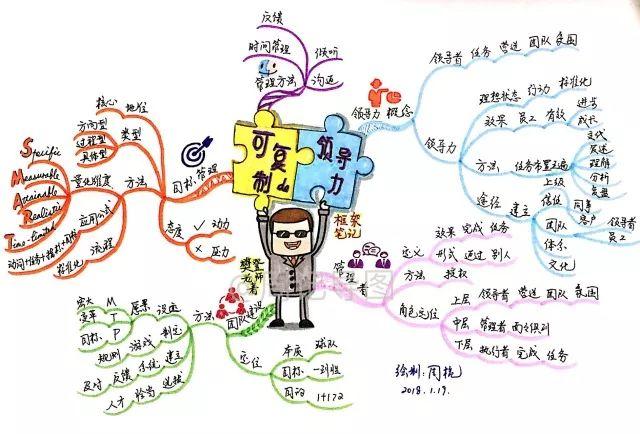 可复制的
领导力
框架
笔记
樊登
老师
著
领导力 概念
领导者 任务 营造 团队 氛围
领导力
理想状态 行动 标准化
效果 员工 有效
进步
成长
方法 任务布置五遍
交代
复述
理解
分析
上级
途径 建立
信任
同事
客户
团队
领导者
员工
体系
文化
管理者
定义
效果 完成 任务
形式 通过 别人
方法 授权
角色定位
上层 领导者 营造 团队 氛围
中层 管理者
下层 执行者 完成 任务
团队建设
方法
愿景
宏大 M
变革 T
目标 P
规则 游戏 制定
及时 反馈 系统 建立
人才 恰当 选拔
定位
本质 球队
目标 一致性
目的 1+1>2
目标管理
核心 地位
类型
方向型
过程型
具体型
方法
量化刻度
Specific
Measurable
Attainable
Realistic
Time-limited
应用公式
标准化 流程
态度
✓ 动力
× 压力
管理方法
反馈
时间管理
倾听
沟通
绘制：周
2018.1.19.